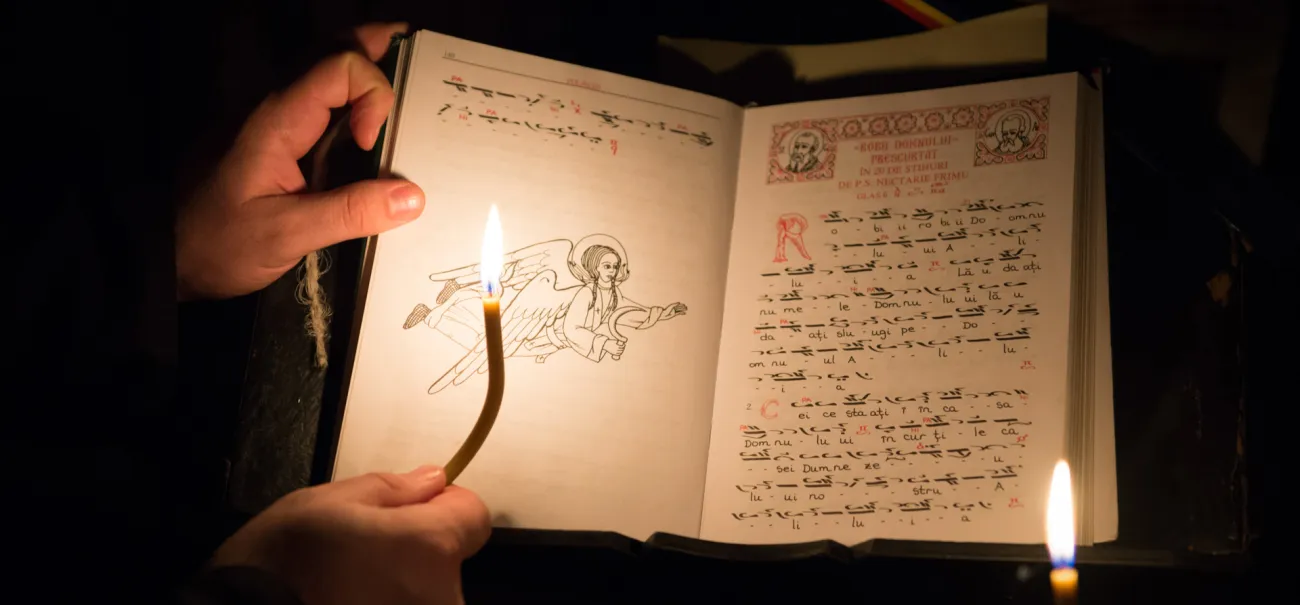 -ROBII DOMNULUI-
PRESCURTAT
ÎN 21 DE STIHURI
DE P.S. NECTARIE FRIMU
GLASUL
R o - bi ii ro bi ii Do - omnu
lu - ui A - - li -
- lu - i - a Lă u da ați
nu me - le - Domnu - lu ui lă u
da - ați slu - ugi pe - - Do -
om nu - ul A - - li - lu -
- i - a
2 C ei ce sta ați î în ca - - sa -
Dom nu - lu ui în cur ți - le ca
- - sei Dum ne ze - - - - u
lu - ui no - - - stru - - A -
- - li - - lu - - i - - a